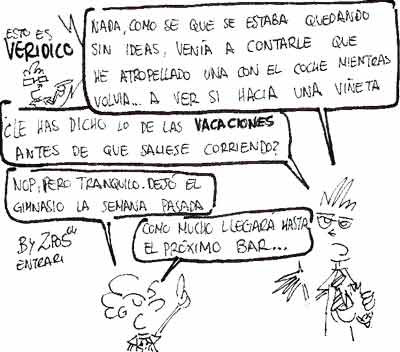 ESTO ES
VERIDICO
NADA, COMO SE QUE SE ESTABA QUEDANDO
SIN IDEAS, VENÍA A CONTARLE QUE
HE ATROPELLADO UNA CON EL COCHE MIENTRAS
VOLVIA... A VER SI HACIA UNA VIÑETA
¿LE HAS DICHO LO DE LAS VACACIONES
ANTES DE QUE SALIESE CORRIENDO?
NOP, PERO TRANQUILO. DEJÓ EL
GIMNASIO LA SEMANA PASADA
COMO MUCHO LLEGARA HASTA
EL PRÓXIMO BAR...
BY
ENTRARI